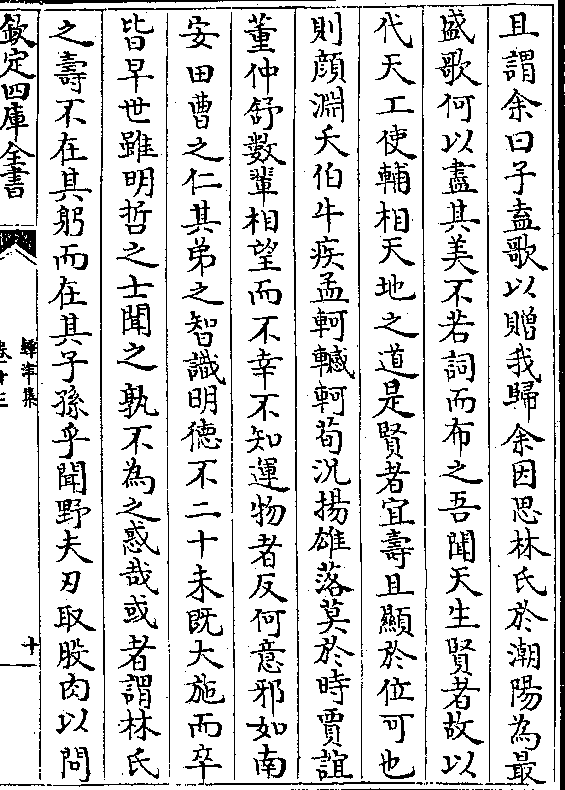 且謂余曰子盍歌以贈我歸余因思林氏於潮陽為最
盛歌何以盡其美不若詞而布之吾聞天生賢者故以
代天工使輔相天地之道是賢者宜壽且顯於位可也
則顔淵夭伯牛疾孟軻轗軻荀況揚雄落莫於時賈誼
董仲舒數輩相望而不幸不知運物者反何意邪如南
安田曹之仁其弟之智識明德不二十未既大施而卒
皆早世雖明哲之士聞之孰不為之惑哉或者謂林氏
之壽不在其躬而在其子孫乎聞野夫刃取股肉以問
欽定四庫全書
鐔津集
卷十三
十